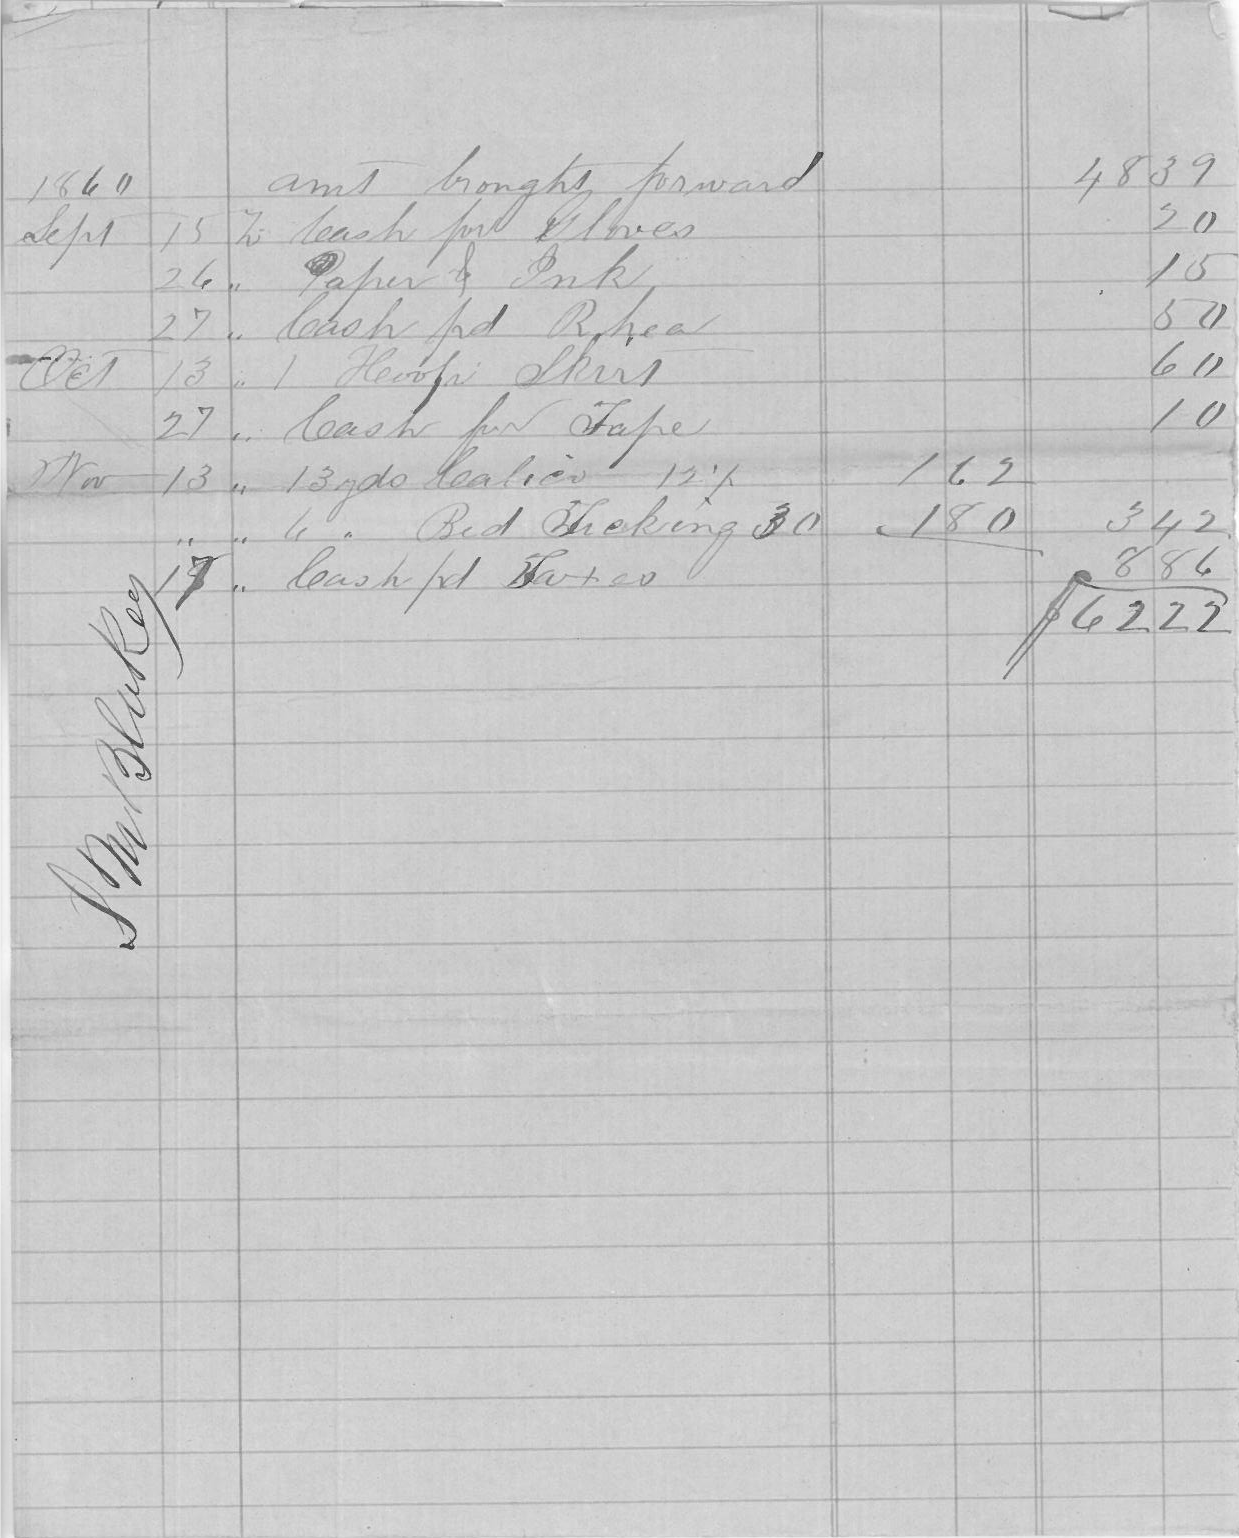 1860 amt brought forward 48 39
Sept 15 To Cash for Gloves 20
26 " Paper & Ink 15
27 " Cash pd Rhea 50
Oct 13 " 1 Hoop Skirt 60
27 " Cash for Tape 10
Nov 13 " 13 yds Calico 12½ 1 62
" " 6 " Bed Ticking 30 1 80 3 42
17 " Cash pd Taxes 8 86
$62 22
S M Blukey